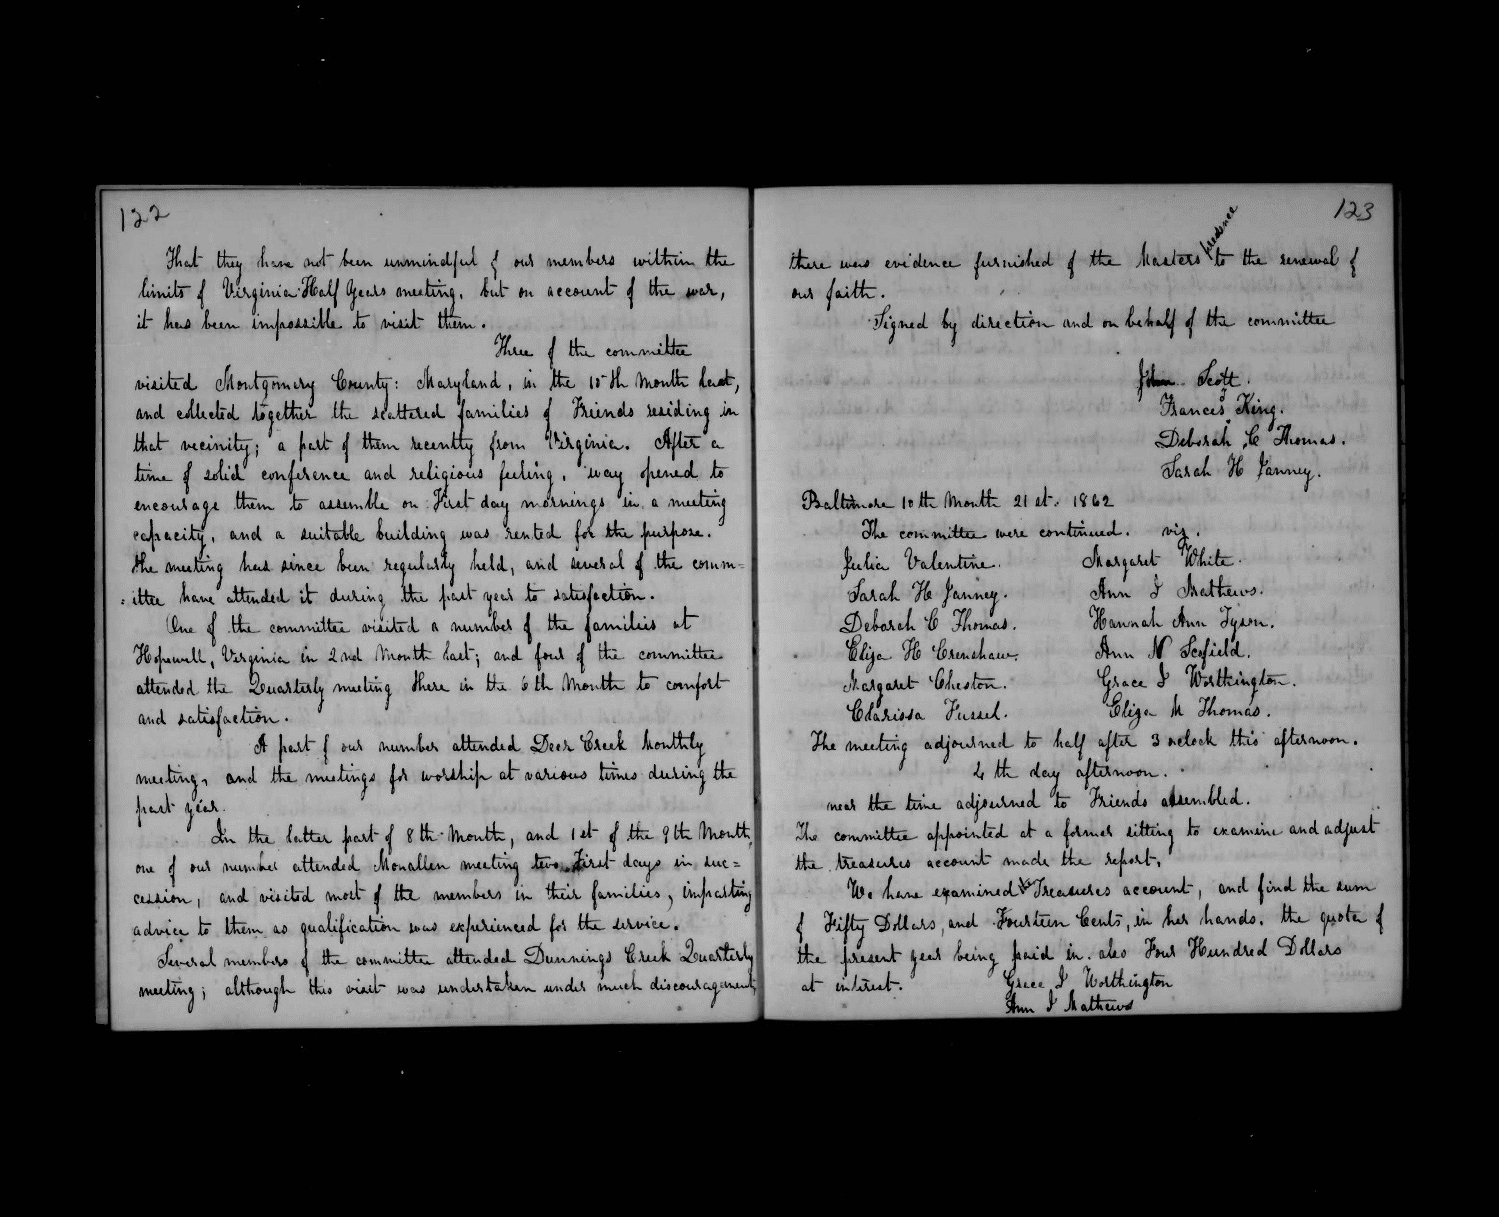 122
That they have not been unmindful of our members within the
limits of Virginia Half Years meeting, but on account of the war,
it has been impossible to visit them.
Three of the committee
visited Montgomery County: Maryland, in the 10th Month last,
and collected together the scattered families of Friends residing in
that vecinity; a part of them recently from Virginia. After a
time of solid conference and religious feeling, way opened to
encourage them to assemble on First day mornings in a meeting
capacity, and a suitable building was rented for the purpose.
the meeting has since been regularly held, and several of the comm=
=ittee have attended it during the past year to satisfaction.
One of the committee visited a number of the families at
Hopewell, Virginia in 2nd Month last; and four of the committee
attended the Quarterly meeting there in the 6th Month to comfort
and satisfaction.
A part of our number attended Deer Creek Monthly
meeting, and the meetings for worship at various times during the
past year.
In the latter part of 8th Month, and 1st of the 9th Month,
one of our number attended Monallen meeting two First days in suc=
cession, and visited most of the members in their families, imparting
advice to them as qualification was experienced for the service.
Several members of the committee attended Dunnings Creek Quarterly
meeting; although this visit was undertaken under much discouragement,
123
there was evidence furnished of the Masters presence to the renewal of
our faith.
Signed by direction and on behalf of the committee
John Scott.
Frances T King.
Deborah C Thomas.
Sarah H Janney.
Baltimore 10th Month 21st. 1862
The committee were continued. viz.
Julia Valentine. Margaret White.
Sarah H Janney. Ann J Mathews.
Deborah C Thomas. Hannah Ann Tyson.
Eliza H Crenshaw. Ann N Scofield.
Margaret Cheston. Grace J Worthington.
Clarissa Fussel. Eliza M Thomas.
The meeting adjourned to half after 3 oclock this afternoon.
4th day afternoon.
near the time adjourned to Friends assembled.
The committee appointed at a former sitting to examine and adjust
the treasures account made the report,
We have examined the Treasures account, and find the sum
of Fifty Dollars, and Fourteen Cents, in her hands. the quota of
the present year being paid in. also Four Hundred Dollars
at interest.
Grace J Worthington
Ann J Mathews